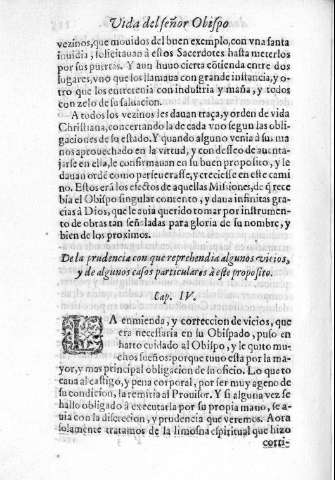 Vida del señor Obispo
vezinos, que mouidos del buen exemplo, con vna santa
inuidia, solicitauan à estos Sacerdotes hasta meterlos
por sus puertas. Y aun huuo cierta cõtienda entre dos
lugares, vno que los llamaua con grande instancia, y o-
tro que los entretenia con industria y maña, y todos
con zelo de su saluacion.
A todos los vezinos les dauan traça, y orden de vida
Christiana, concertando la de cada vno segun las obli-
gaciones de su estado. Y quando alguno venia à su ma-
no aprouechado en la virtud, y con desseo de auenta-
jarse en ella, le confirmauan en su buen proposito, y le
dauan ordẽ como perseuerasse, y creciesse en este cami
no. Estos erã los efectos de aquellas Missiones, de q̃ rece
bia el Obispo singular contento, y daua infinitas gra-
cias à Dios, que le auia querido tomar por instrumen-
to de obras tan señaladas para gloria de su nombre, y
bien de los proximos.
De la prudencia con que reprehendia algunos vicios,
y de algunos casos particulares à este proposito.
Cap. IV.
LA enmienda, y correccion de vicios, que
era necessaria en su Obispado, puso en
harto cuidado al Obispo, y le quitò mu-
chos sueños: porque tuuo esta por la ma-
yor, y mas principal obligacion de su oficio. Lo que to
caua al castigo, y pena corporal, por ser muy ageno de
su condicion, la remitia al Prouisor. Y si alguna vez se
hallo obligado à executarla por su propia mano, se a-
uia con la discrecion, y prudencia que veremos. Aora
solamente tratamos de la limosna espiritual que hizo
corri-